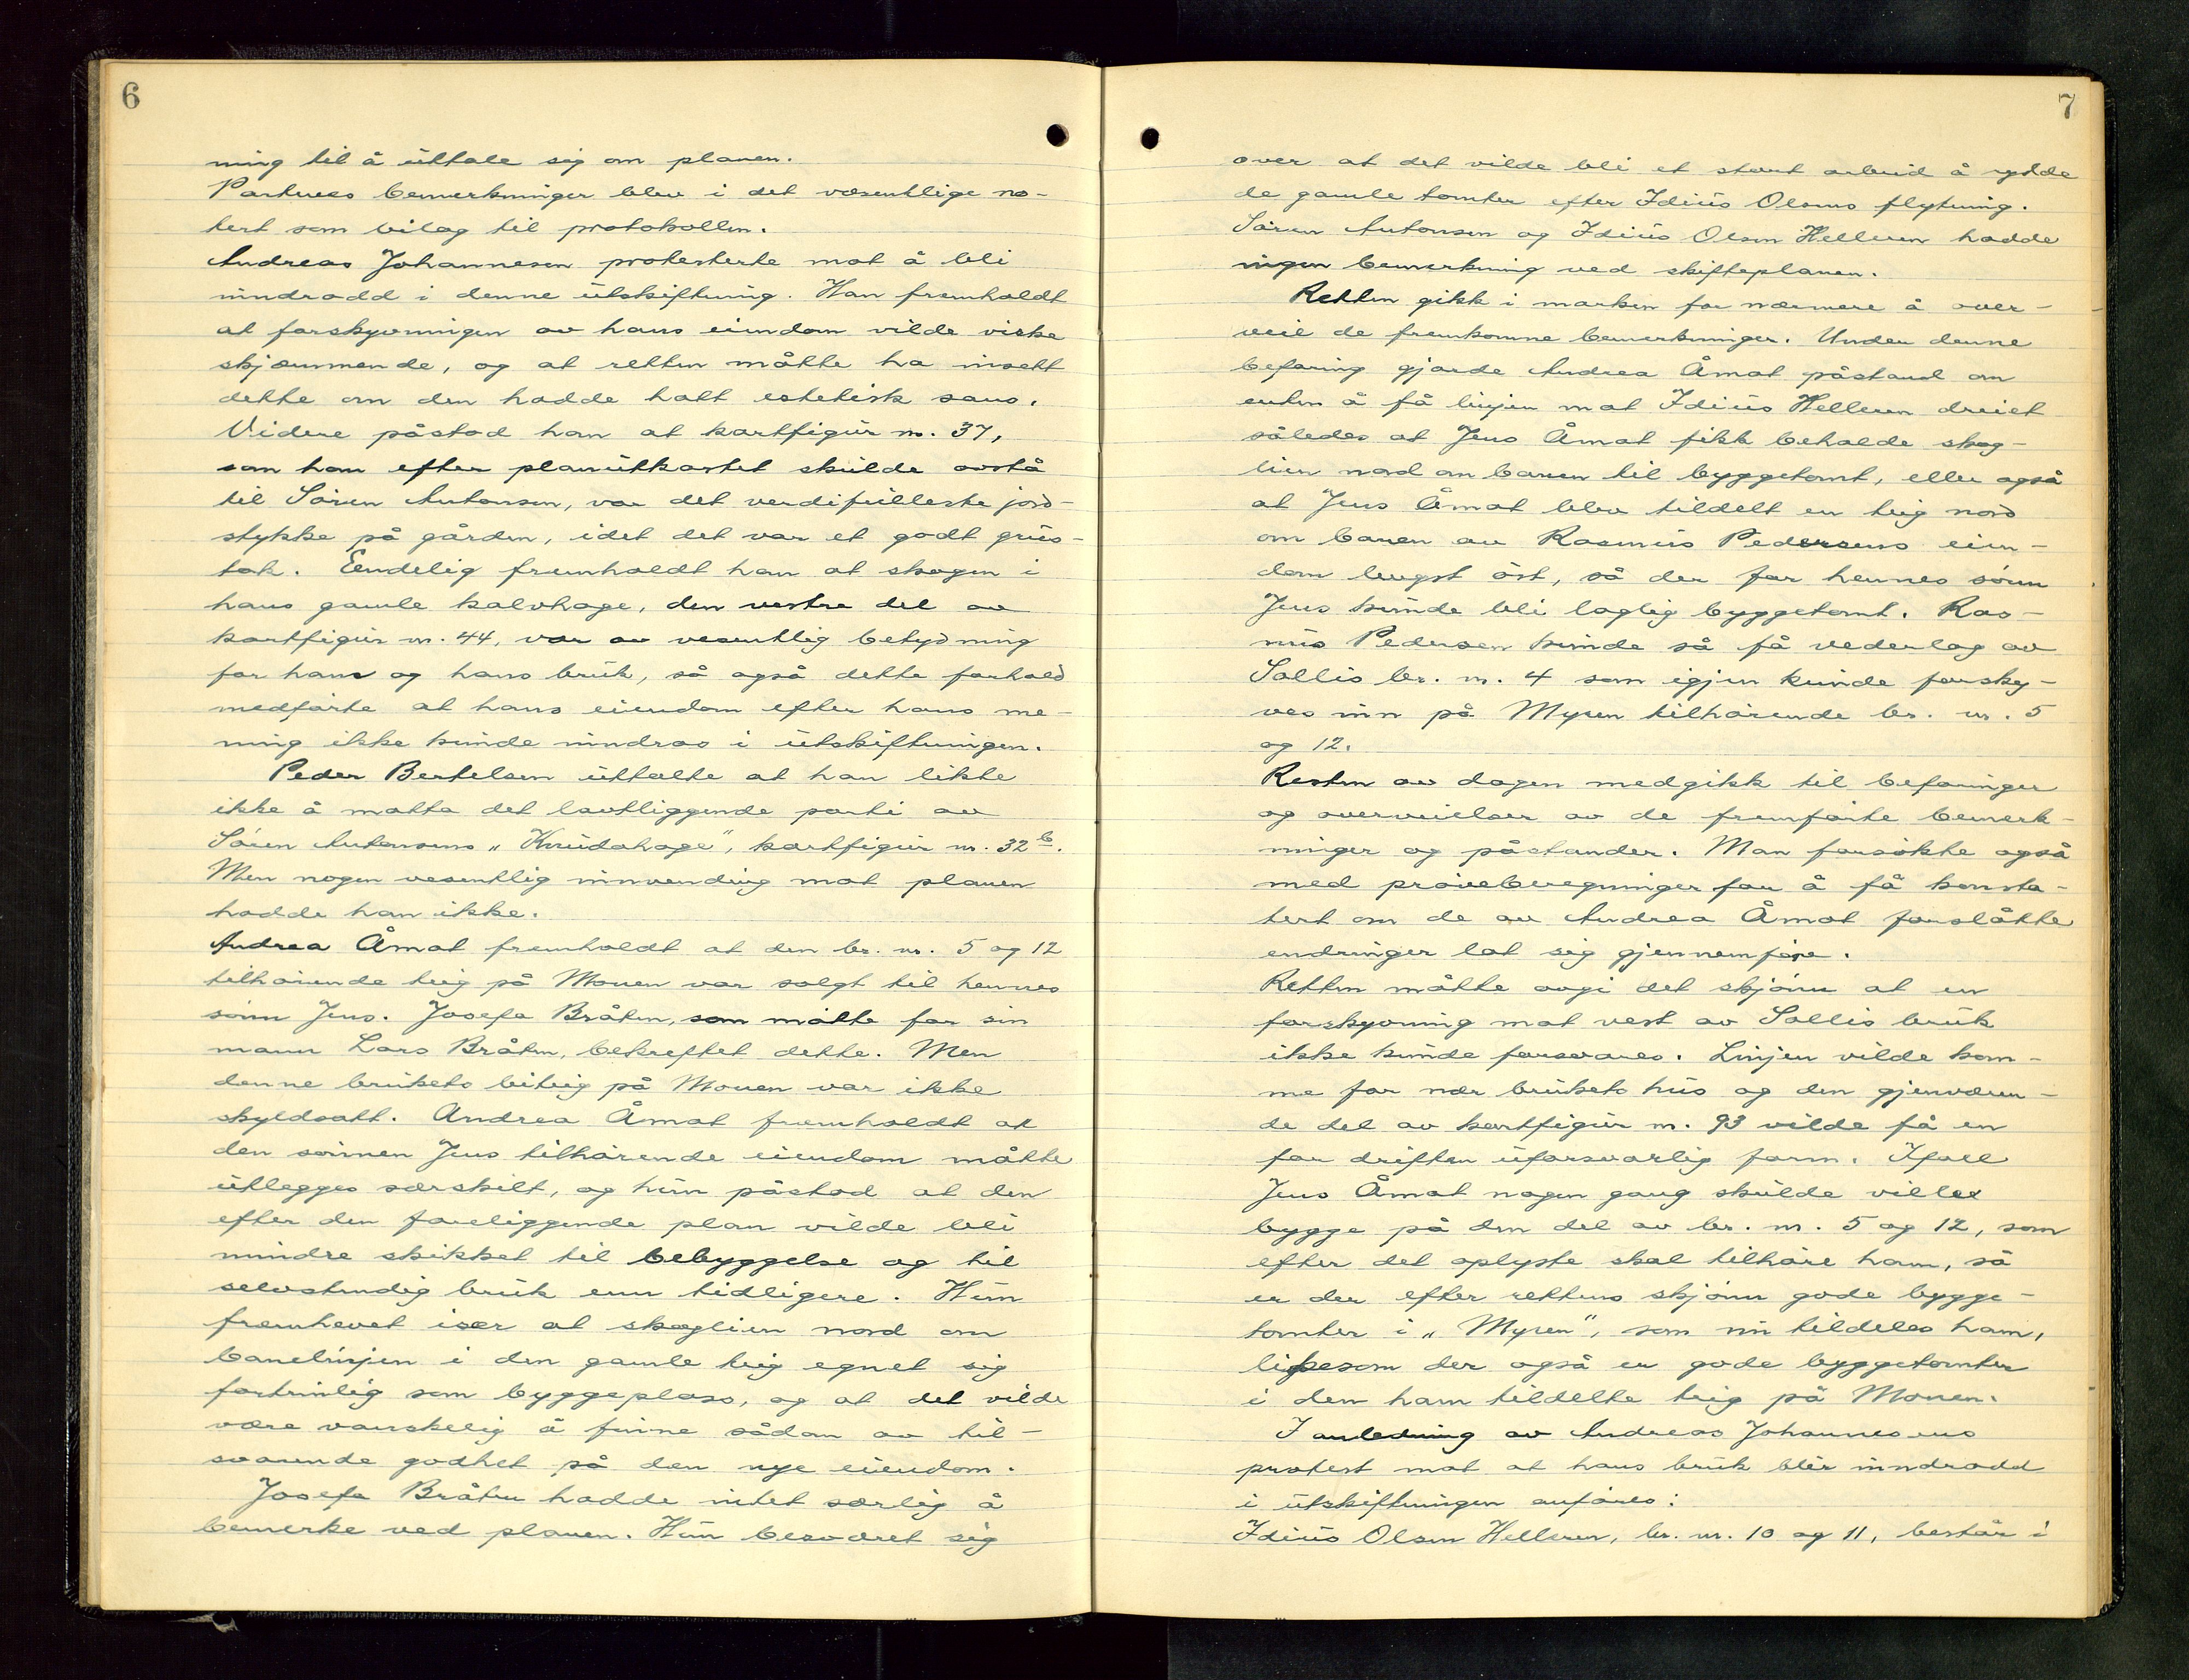 6
ning til å uttale sig om planen.
Partenes bemerkninger blev i det væsentlige no-
tert som bilag til protokollen.
Andreas Johannesen protesterte mot å bli
inndradd i denne utskiftning. Han fremholdt
at forskyvningen av hans eiendom vilde virke
skjæmmende, og at retten måtte ha innsett
dette om den hadde hatt estetisk sans.
Videre påstod han at kartfigur nr. 37,
som han efter planutkastet skulde avstå
til Sören Antonsen, var det verdifulleste jord-
stykke på gården, idet det var et godt grus-
tak. Eendelig fremholdt han at skogen i
hans gamle kalvhage, den vestre del av
kartfigur nr. 44, var av vesentlig betydning
for hans og hans bruk, så også dette forhold
medförte at hans eiendom efter hans me-
ning ikke kunde inndras i utskiftningen.
Peder Bertelsen uttalte at han likte
ikke å motta det lavtliggende parti av
Sören Antonsens „Knudahage", kartfigur nr. 32 b.
Men nogen vesentlig innvending mot planen
hadde han ikke.
Andrea Åmot fremholdt at den br. nr. 5 og 12
tilhörende teig på Monen var solgt til hennes
sönn Jens. Josefa Bråten, som mötte for sin
mann Lars Bråten, bekreftet dette. Men
denne brukets biteig på Monen var ikke
skyldsatt. Andrea Åmot fremholdt at
den sönnen Jens tilhörende eiendom måtte
utlegges særskilt, og hun påstod at den
efter den foreliggende plan vilde bli
mindre skikket til bebyggelse og til
selvstendig bruk enn tidligere. Hun
fremhevet især at skoglien nord om
banelinjen i den gamle teig egnet sig
fortrinlig som byggeplass, og at det vilde
være vanskelig å finne sådan av til-
svarende godhet på den nye eiendom.
Josefa Bråten hadde intet særlig å
bemerke ved planen. Hun besværet sig
7
over at det vilde bli et stort arbeid å rydde
de gamle tomter efter Idius Olsens flytning.
Sören Antonsen og Idius Olsen Helleren hadde
ingen bemerkning ved skifteplanen.
Retten gikk i marken for nærmere å over-
veie de fremkomne bemerkninger. Under denne
befaring gjorde Andrea Åmot påstand om
enten å få linjen mot Idius Helleren dreiet
således at Jens Åmot fikk beholde skog-
lien nord om banen til byggetomt, eller også
at Jens Åmot blev tildelt en teig nord
om banen av Rasmus Pedersens eien-
dom lengst öst, så der for hennes sönn
Jens kunde bli laglig byggetomt. Ras-
mus Pedersen kunde så få vederlag av
Sollis br. nr. 4 som igjen kunde forsky-
ves inn på Myren tilhörende br. nr. 5
og 12.
Resten av dagen medgikk til befaringer
og overveielser av de fremförte bemerk-
ninger og påstander. Man forsökte også
med pröveberegninger for å få konsta-
tert om de av Andrea Åmot foreslåtte
endringer lot sig gjennemföre.
Retten måtte avgi det skjönn at en
forskyvning mot vest av Sollis bruk
ikke kunde forsvares. Linjen vilde kom-
me for nær brukets hus og den gjenværen-
de del av kartfigur nr. 93 vilde få en
for driften uforsvarlig form. Ifall
Jens Åmot nogen gang skulde villet
bygge på den del av br. nr. 5 og 12, som
efter det oplyste skal tilhöre ham, så
er der efter rettens skjönn gode bygge-
tomter i „Myren", som nu tildeles ham,
likesom der også er gode byggetomter
i den ham tildelte teig på Monen.
I anledning av Andreas Johannesens
protest mot at hans bruk blir inndradd
i utskiftningen anföres:
Idius Olsen Helleren, br. nr. 10 og 11, består i